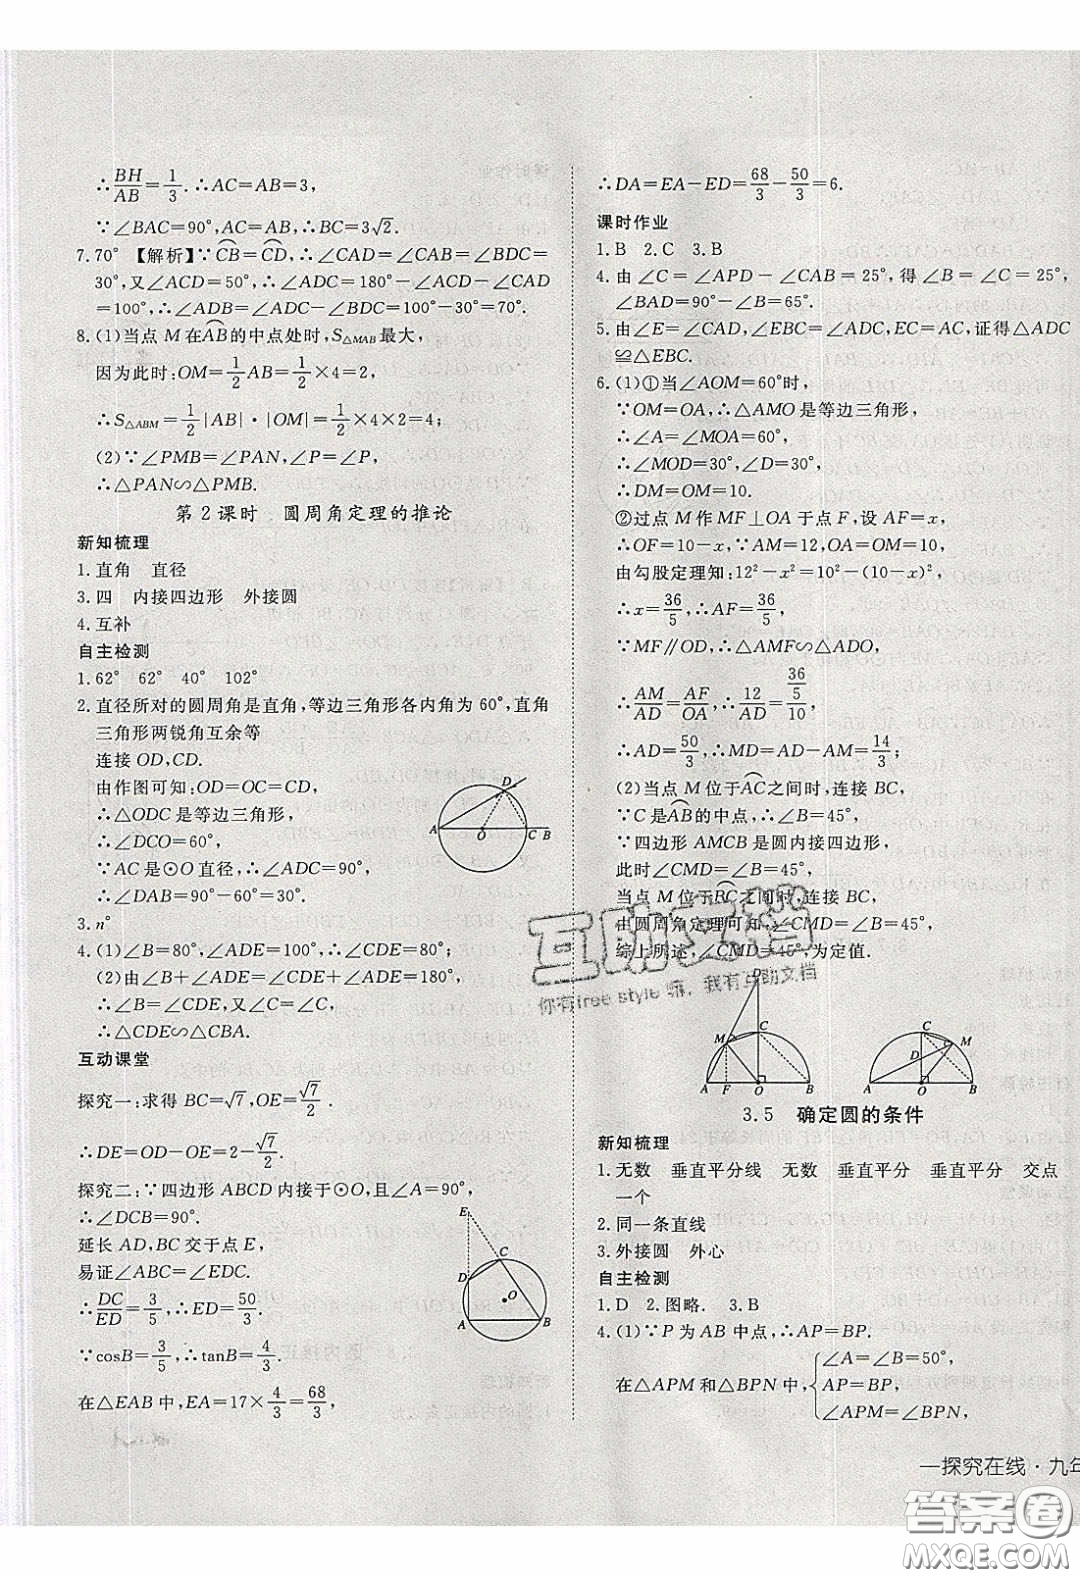 ∴BH/AB=1/3.∴AC=AB=3,
∵∠BAC=90°,AC=AB,∴BC=3√2.
7.70° 【解析】∵CB=CD,∴∠CAD=∠CAB=∠BDC=
30°,又∠ACD=60°,∴∠ADC=180°-∠ACD-∠CAD
=100°,∴∠ADB=∠ADC-∠BDC=100°-30°=70°.
8.(1)当点M在AB的中点处时,S△MAB最大,
因为此时:OM=1/2AB=1/2×4=2,
∴S△ABM=1/2|AB|·|OM|=1/2×4×2=4;
(2)∵∠PMB=∠PAN,∠P=∠P,
∴△PAN∽△PMB.
第2课时 圆周角定理的推论
新知梳理
1.直角 直径
3.四 内接四边形 外接圆
4.互补
自主检测
1.62° 62° 40° 102°
2.直径所对的圆周角是直角,等边三角形各内角为60°,直角
三角形两锐角互余等
连接OD,CD.
由作图可知:OD=OC=DC,
∴△ODC是等边三角形,
∴∠DCO=60°,
∵AC是⊙O直径,∴∠ADC=90°,
∴∠DAB=90°-60°=30°.
D
A O C B
3.n°
4.(1)∠B=80°,∠ADE=100°,∴∠CDE=80°;
(2)由∠B+∠ADE=∠CDE+∠ADE=180°,
∴∠B=∠CDE,又∠C=∠C,
∴△CDE∽△CBA.
互动课堂
探究一:求得BC=√7,OE=√7/2.
∴DE=OD-OE=2-√7/2.
探究二:∵四边形ABCD内接于⊙O,且∠A=90°,
∴∠DCB=90°.
延长AD,BC交于点E,
易证∠ABC=∠EDC.
∴DC/ED=3/5,∴ED=50/3.
∵cosB=3/5,∴tanB=4/3.
在△EAB中,EA=17×4/3=68/3,
E
C
D
O
A B
∴DA=EA-ED=68/3-50/3=6.
课时作业
1.B 2.C 3.B
4.由∠C=∠APD-∠CAB=25°,得∠B=∠C=25°,
∠BAD=90°-∠B=65°.
5.由∠E=∠CAD,∠EBC=∠ADC,EC=AC,证得△ADC
≌△EBC.
6.(1)①当∠AOM=60°时,
∵OM=OA,∴△AMO是等边三角形,
∴∠A=∠MOA=60°,
∴∠MOD=30°,∠D=30°,
∴DM=OM=10.
②过点M作MF⊥OA于点F,设AF=x,
∴OF=10-x,∵AM=12,OA=OM=10,
由勾股定理知:12²-x²=10²-(10-x)².
∴x=36/5,∴AF=36/5,
∵MF∥OD,∴△AMF∽△ADO,
∴AM/AD=AF/OA,∴12/AD=(36/5)/10,
∴AD=50/3,∴MD=AD-AM=14/3;
(2)当点M位于AC之间时,连接BC,
∵C是AB的中点,∴∠B=45°,
∵四边形AMCB是圆内接四边形,
此时∠CMD=∠B=45°,
当点M位于BC之间时,连接BC,
由圆周角定理可知,∠CMD=∠B=45°,
综上所述,∠CMD=45°,为定值.
互助文档
你有free style 嘛,我有互助文档
D
M C
A F O B
C
D M
A O B
3.5 确定圆的条件
新知梳理
1.无数 垂直平分线 无数 垂直平分 垂直平分 交点
一个
2.同一条直线
3.外接圆 外心
自主检测
1.D 2.图略. 3.B
4.(1)∵P为AB中点,∴AP=BP.
在△APM和△BPN中,{∠A=∠B=50°,
AP=BP,
∠APM=∠BPN,
一探究在线·九年
答案圈
MXQE.COM